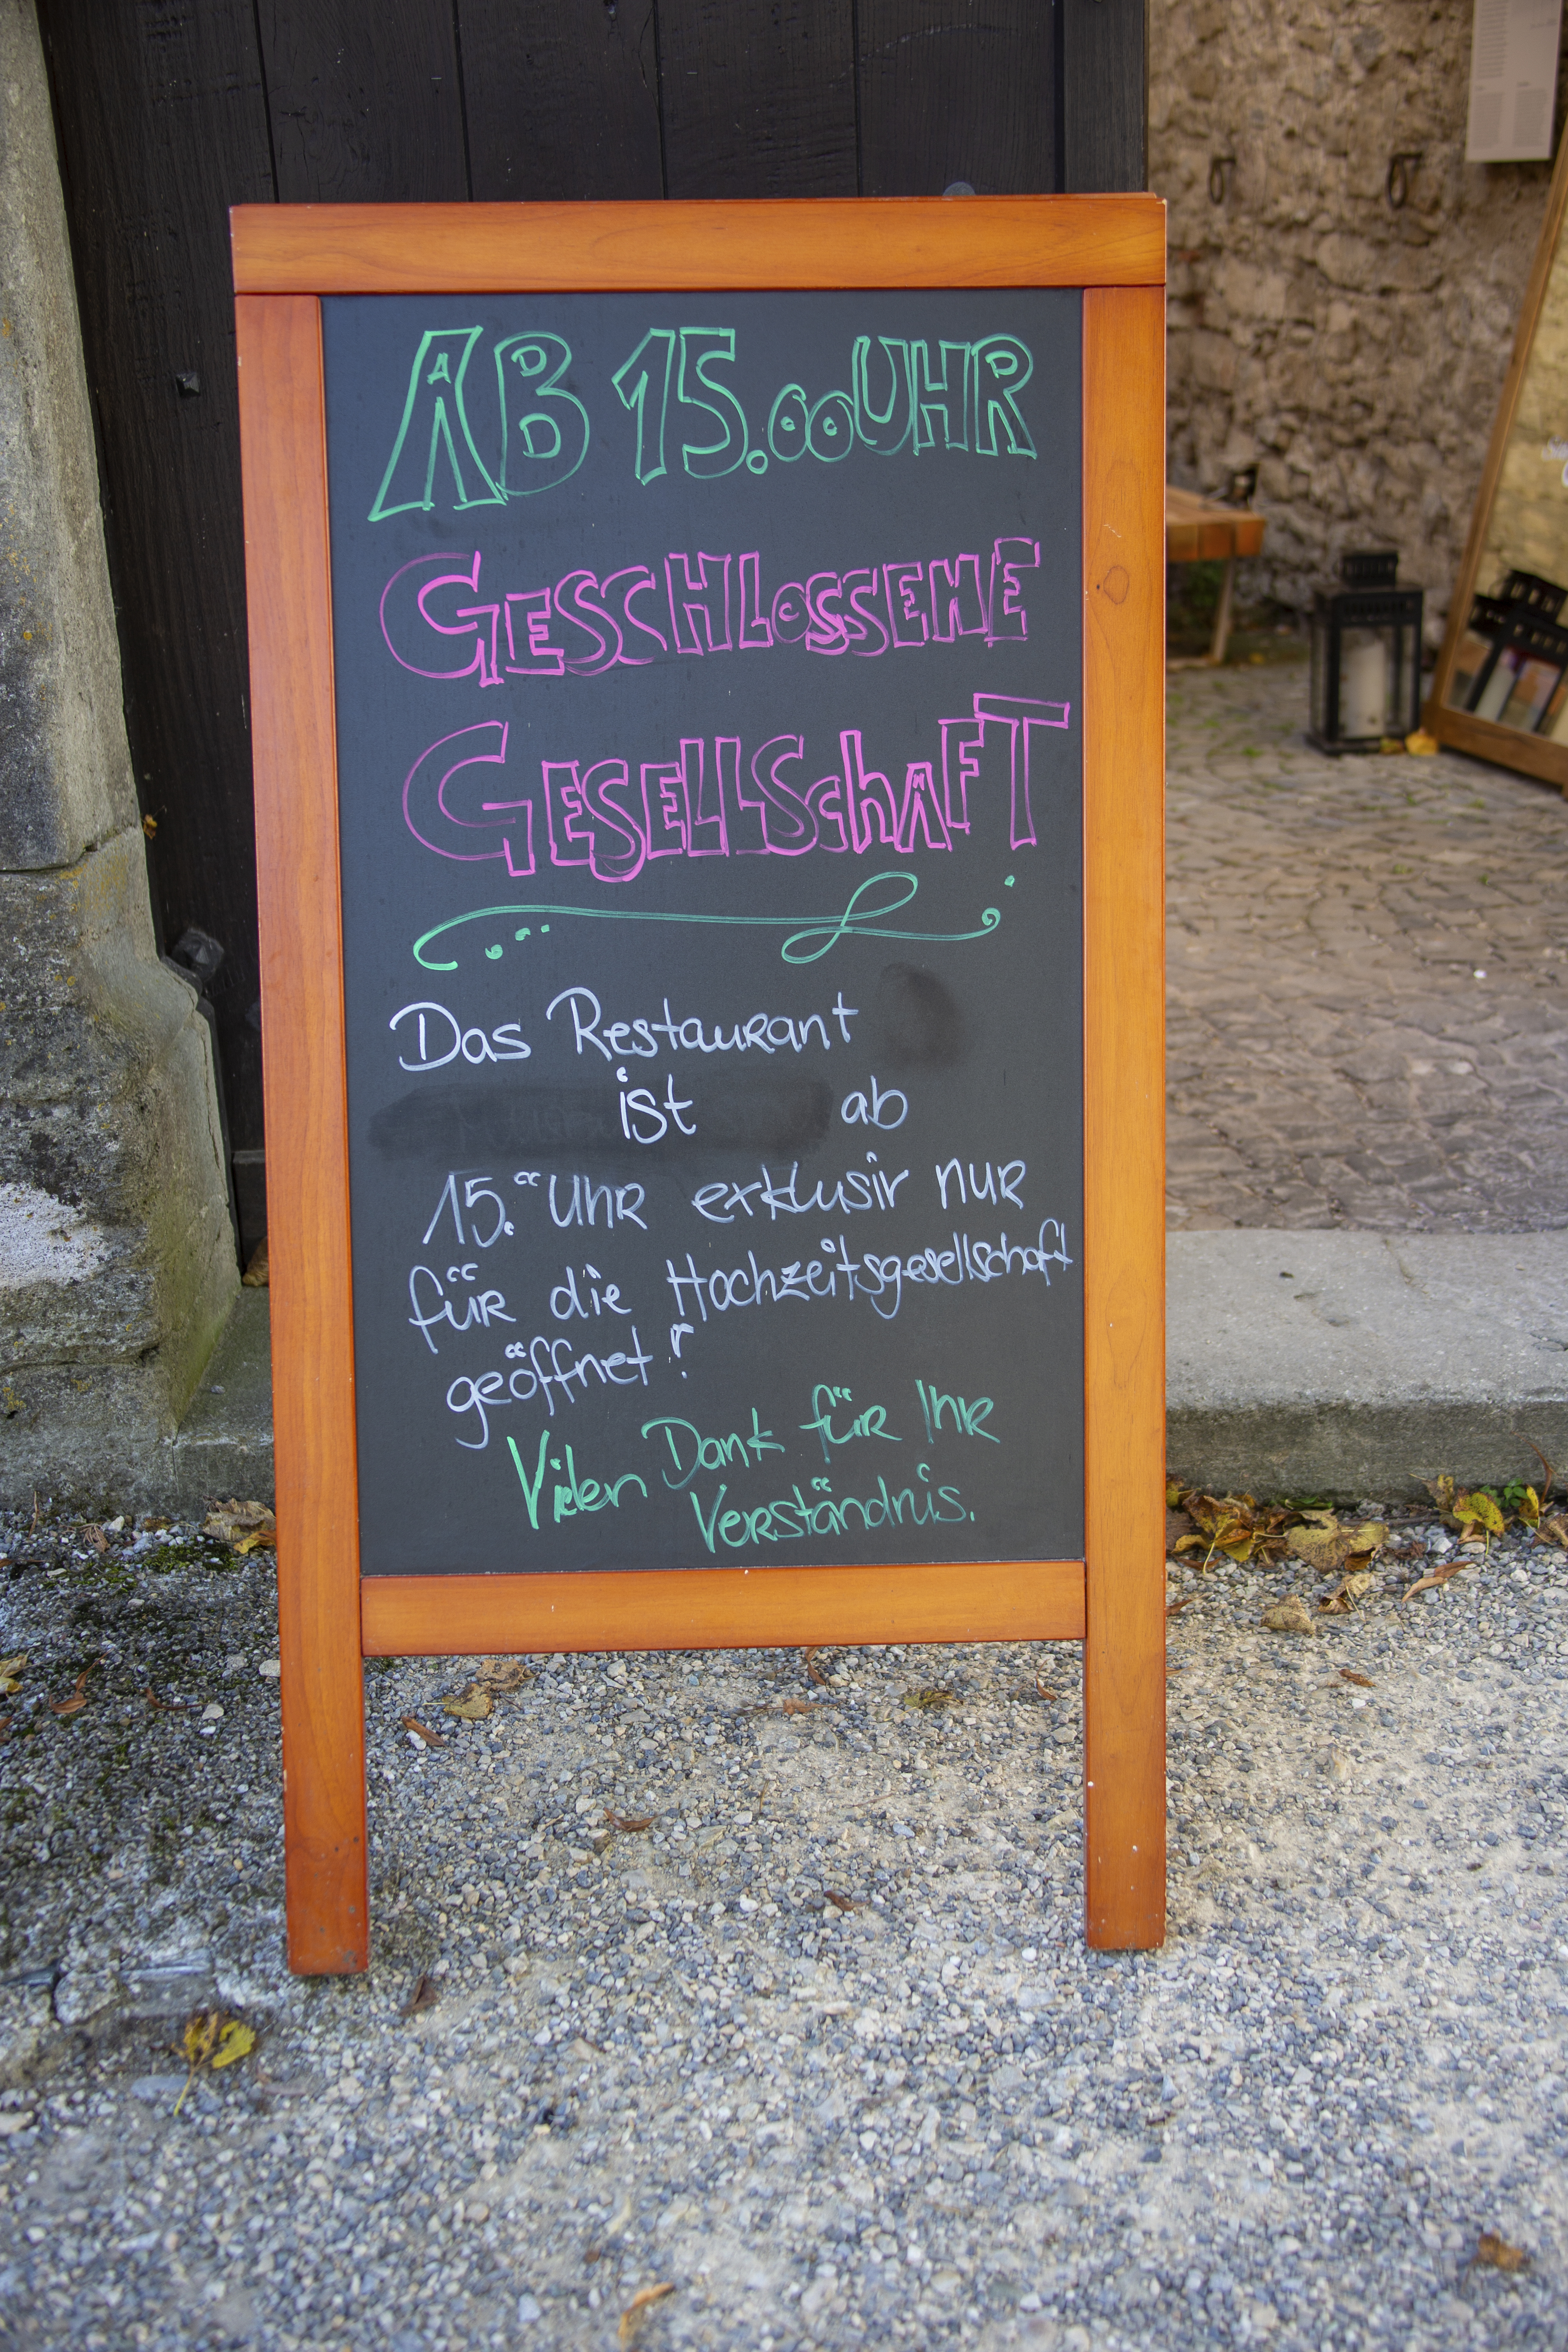 AB 15.00 UHR
GESCHLOSSENE
GESELLSchAFT
Das Restaurant
ist ab
15.00 Uhr exklusiv nur
für die Hochzeitsgesellschaft
geöffnet!
Vielen Dank für Ihr
Verständnis.